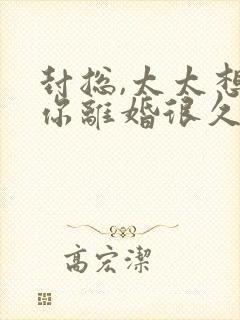 封總,太太想
你離婚很久
高宏潔